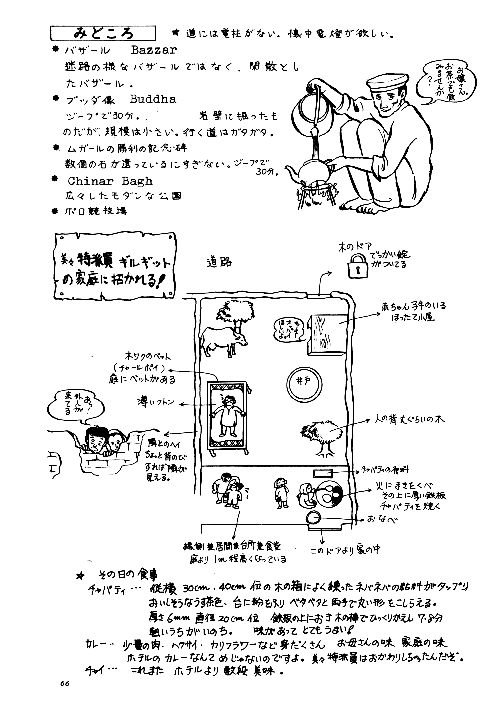 みどころ
★ 道には電柱がない。懐中電燈が欲しい。
● バザール Bazzar
迷路の様なバザールではなく、閑散とし
たバザール。
● ブッダ像 Buddha
ジープで30分。 岩壁に掘ったも
のだが、規模は小さい。行く道はガタガタ。
● ムガールの勝利の記念碑
数個の石が建っているにすぎない。ジープで
30分。
● Chinar Bagh
広々したモダンな公園
● ポロ競技場
お嬢さん、
お茶でも飲
みませんか
?
我々特派員ギルギット
の家庭に招かれる!
道路
木のドア
でっかい錠
がついてる
赤ちゃん羊のいる
ほったて小屋
木ワクのベット
(チャールポイ)
庭にベットがある
薄いフトン
井戸
あっ
外人が
来てる
隣とのヘイ
ちょっと背のび
すれば隣が
見える。
人の背丈ぐらいの木
チャパティの材料
火にまきをくべ
その上に厚い鉄板
チャパティを焼く
おなべ
縁側兼居間兼台所兼食堂
庭より1m程高くなっている
このドアより家の中
★ その日の食事
チャパティ… 縦横30cm・40cm位の木の箱によく練ったネバネバの材料がタップリ
おいしそうなうす茶色、台に粉をふり ペタペタと両手で丸い形をこしらえる。
厚さ6mm 直径20cm位 鉄板の上におき木の棒でひっくりかえし 7.8分
熱いうちがいのち。 味があって とてもうまい!
カレー… 少量の肉・ヘクサイ・カリフラワーなど身だくさん お母さんの味 家庭の味
ホテルのカレーなんて めじゃないのですよ。我々特派員はおかわりしちゃったんだぞ。
チャイ… これまた ホテルより数段美味。
66